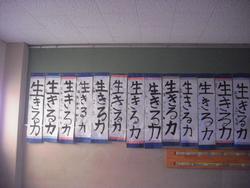 生きる力
生きる力
生きる力
生きる力
生きる力
生きる力
生きる力
生きる力
生きる力
生きる力
生きる力
生きる力
生きる力